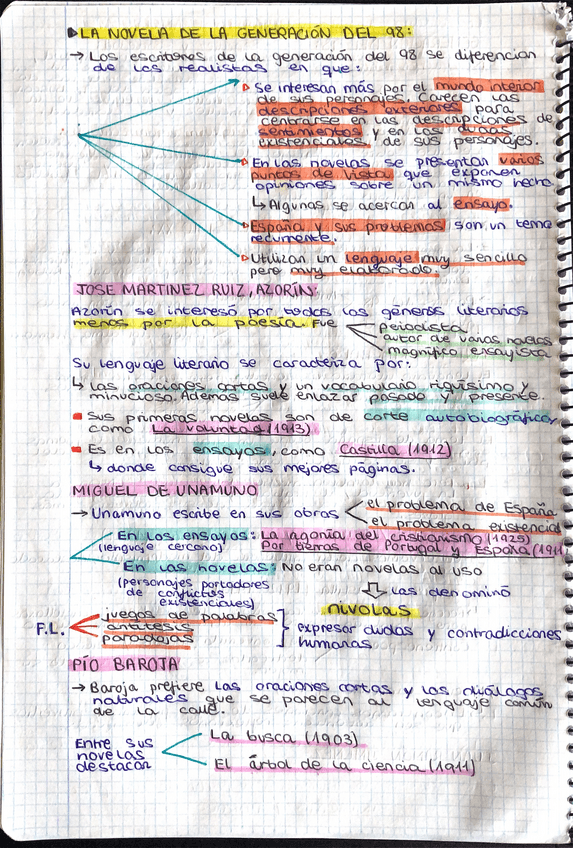 ▶LA NOVELA DE LA GENERACIÓN DEL 98:
→ Los escritores de la generación del 98 se diferencian
de los realistas en que:
▷ Se interesan más por el mundo interior
de sus personajes. Carecen las
descripciones exteriores para
centrarse en las descripciones de
sentimientos y en las dudas
existenciales de sus personajes.
▷ En las novelas se presentan varios
puntos de vista que exponen
opiniones sobre un mismo hecho.
↳ Algunas se acercan al ensayo.
▷ España y sus problemas son un tema
recurrente.
▷ Utilizan un lenguaje muy sencillo
pero muy elaborado.
JOSE MARTINEZ RUIZ, AZORÍN:
Azorín se interesó por todos los géneros literarios
menos por la poesía. Fue
periodista
autor de varias novelas
magnífico ensayista
Su lenguaje literario se caracteriza por:
↳ Las oraciones cortas y un vocabulario riquísimo y
minucioso. Además suele enlazar pasado y presente.
▪ Sus primeras novelas son de corte autobiográfico
como La voluntad (1913)
▪ Es en los ensayos, como Castilla (1912)
↳ donde consigue sus mejores páginas.
MIGUEL DE UNAMUNO
→ Unamuno escribe en sus obras
el problema de España
el problema existencial
En los ensayos: La agonía del cristianismo (1925)
(lenguaje cercano) Por tierras de Portugal y España (1911
En las novelas: No eran novelas al uso
(personajes portadores
de conflictos
existenciales)
las denominó
nivolas
F.L.
juegos de palabras
antítesis
paradojas
expresar dudas y contradicciones
humanas
PÍO BAROJA
→ Baroja prefiere las oraciones cortas y los diálogos
naturales que se parecen al lenguaje común
de la calle.
Entre sus
novelas
destacan
La busca (1903)
El árbol de la ciencia (1911)